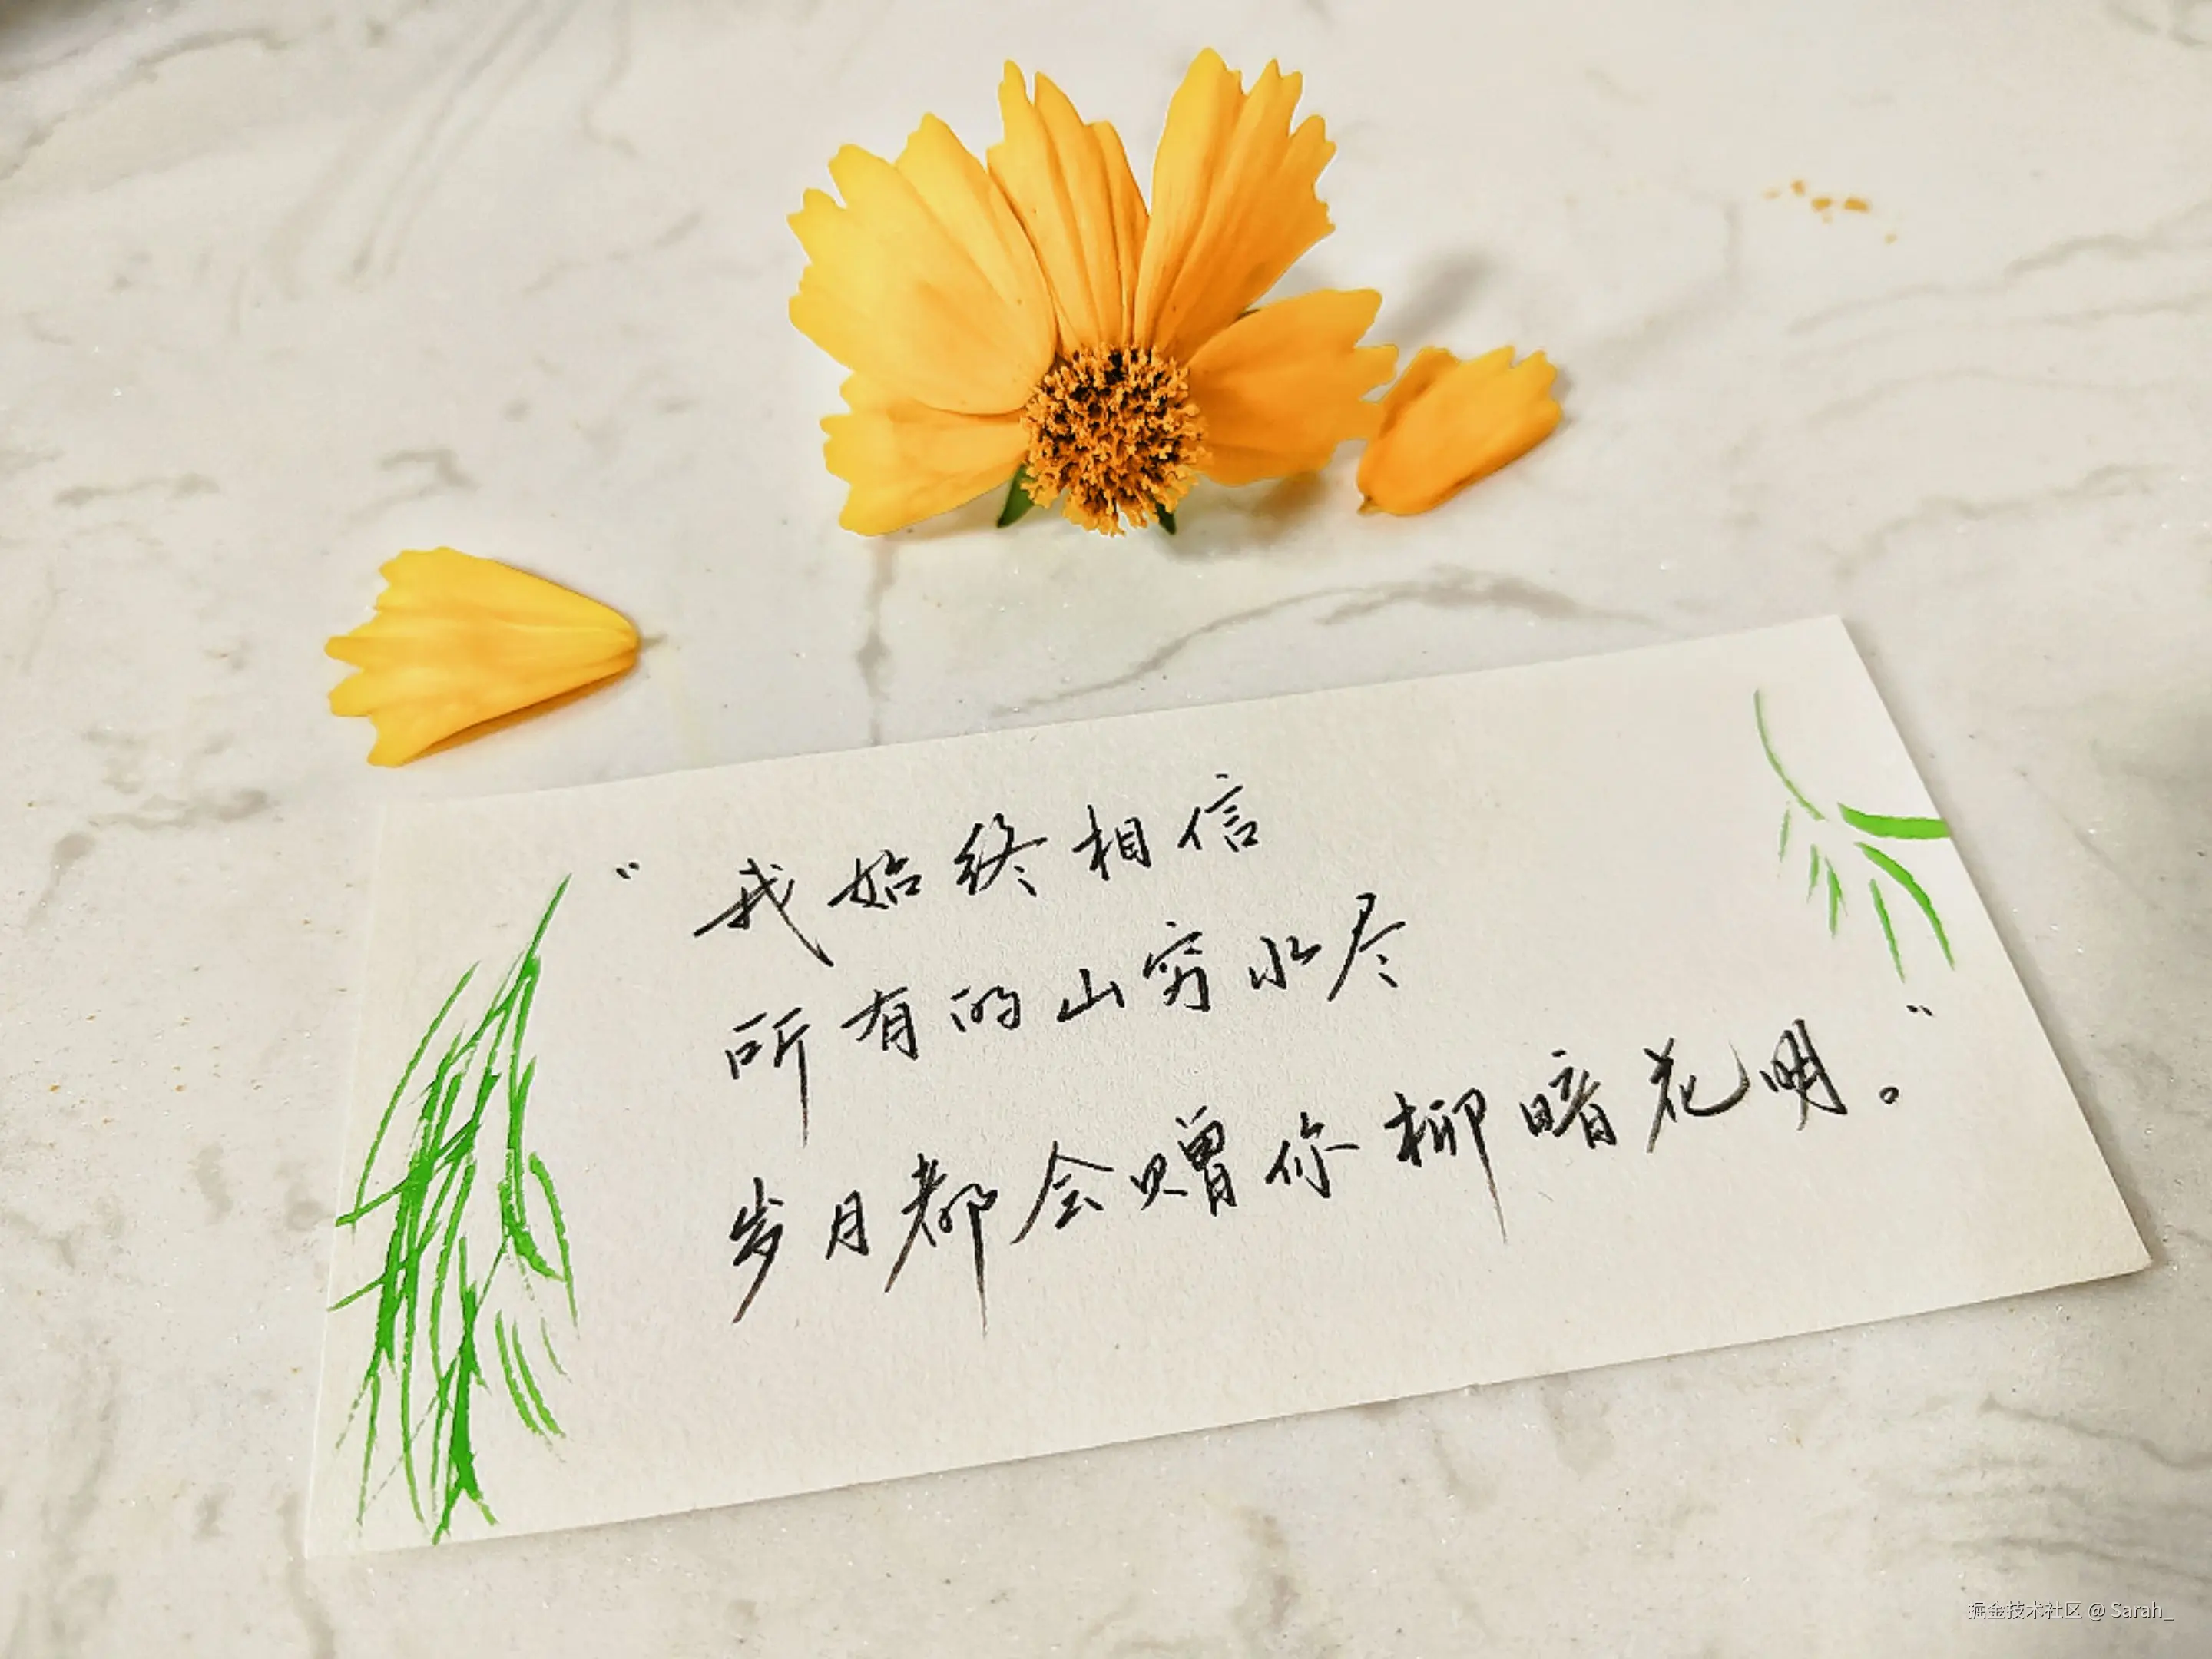 “我始终相信
所有的山穷水尽
岁月都会赠你柳暗花明。”
掘金技术社区 @ Sarah_